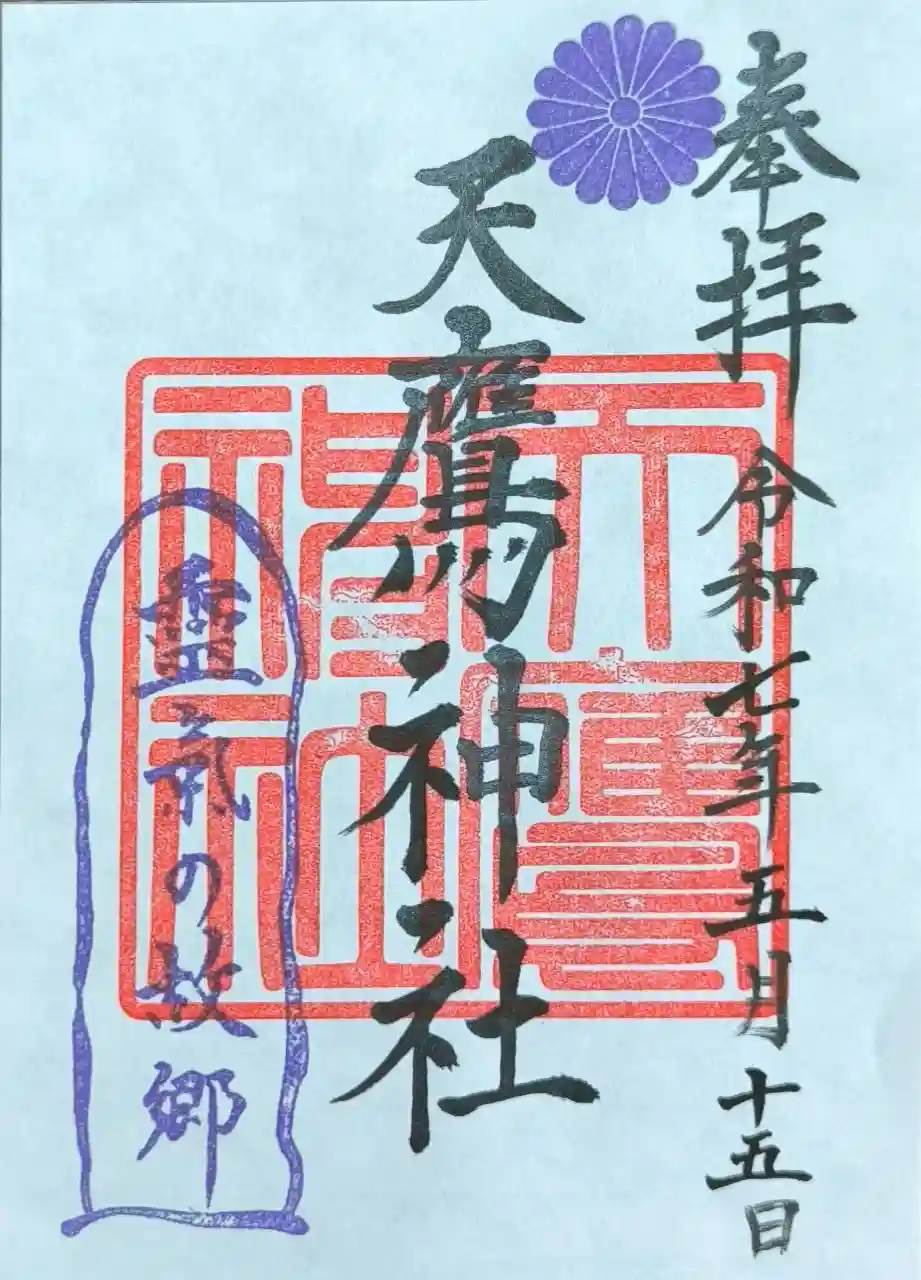 奉拝 令和七年五月十五日
天鷹神社
天鷹神社
霊氣の故郷